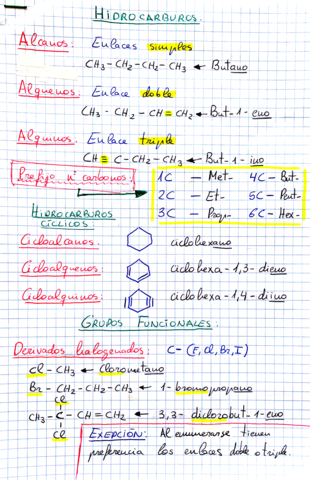 HIDROCARBUROS.
Alcanos: Enlaces simples
CH₃-CH₂-CH₂-CH₃ ← Butano
Alquenos: Enlace doble
CH₃-CH₂-CH=CH₂ ← But-1-eno
Alquinos: Enlace triple
CH≡C-CH₂-CH₃ ← But-1-ino
Prefijo nº carbonos:
1C - Met- 4C - But-
2C - Et- 5C - Pent-
3C - Prop- 6C - Hex-
HIDROCARBUROS CÍCLICOS
Cicloalcanos: ciclohexano
Cicloalquenos: ciclohexa-1,3-dieno
Cicloalquinos: ciclohexa-1,4-diino
GRUPOS FUNCIONALES.
Derivados halogenados: C-(F,Cl,Br,I)
Cl-CH₃ ← Clorometano
Br-CH₂-CH₂-CH₃ ← 1-bromopropano
Cl
CH₃-C-CH=CH₂ ← 3,3-diclorobut-1-eno
Cl
EXEPCIÓN: Al enumerarse tienen
preferencia los enlaces doble o triple.